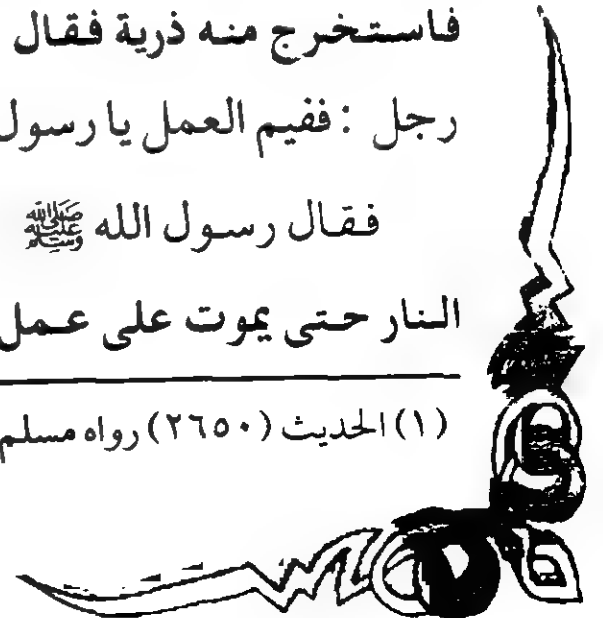 فاستخرج منه ذرية فقال
رجل : ففيم العمل يا رسول
فقال رسول الله ﷺ
النار حتى يموت على عمل
(١) الحديث (٢٦٥٠) رواه مسلم